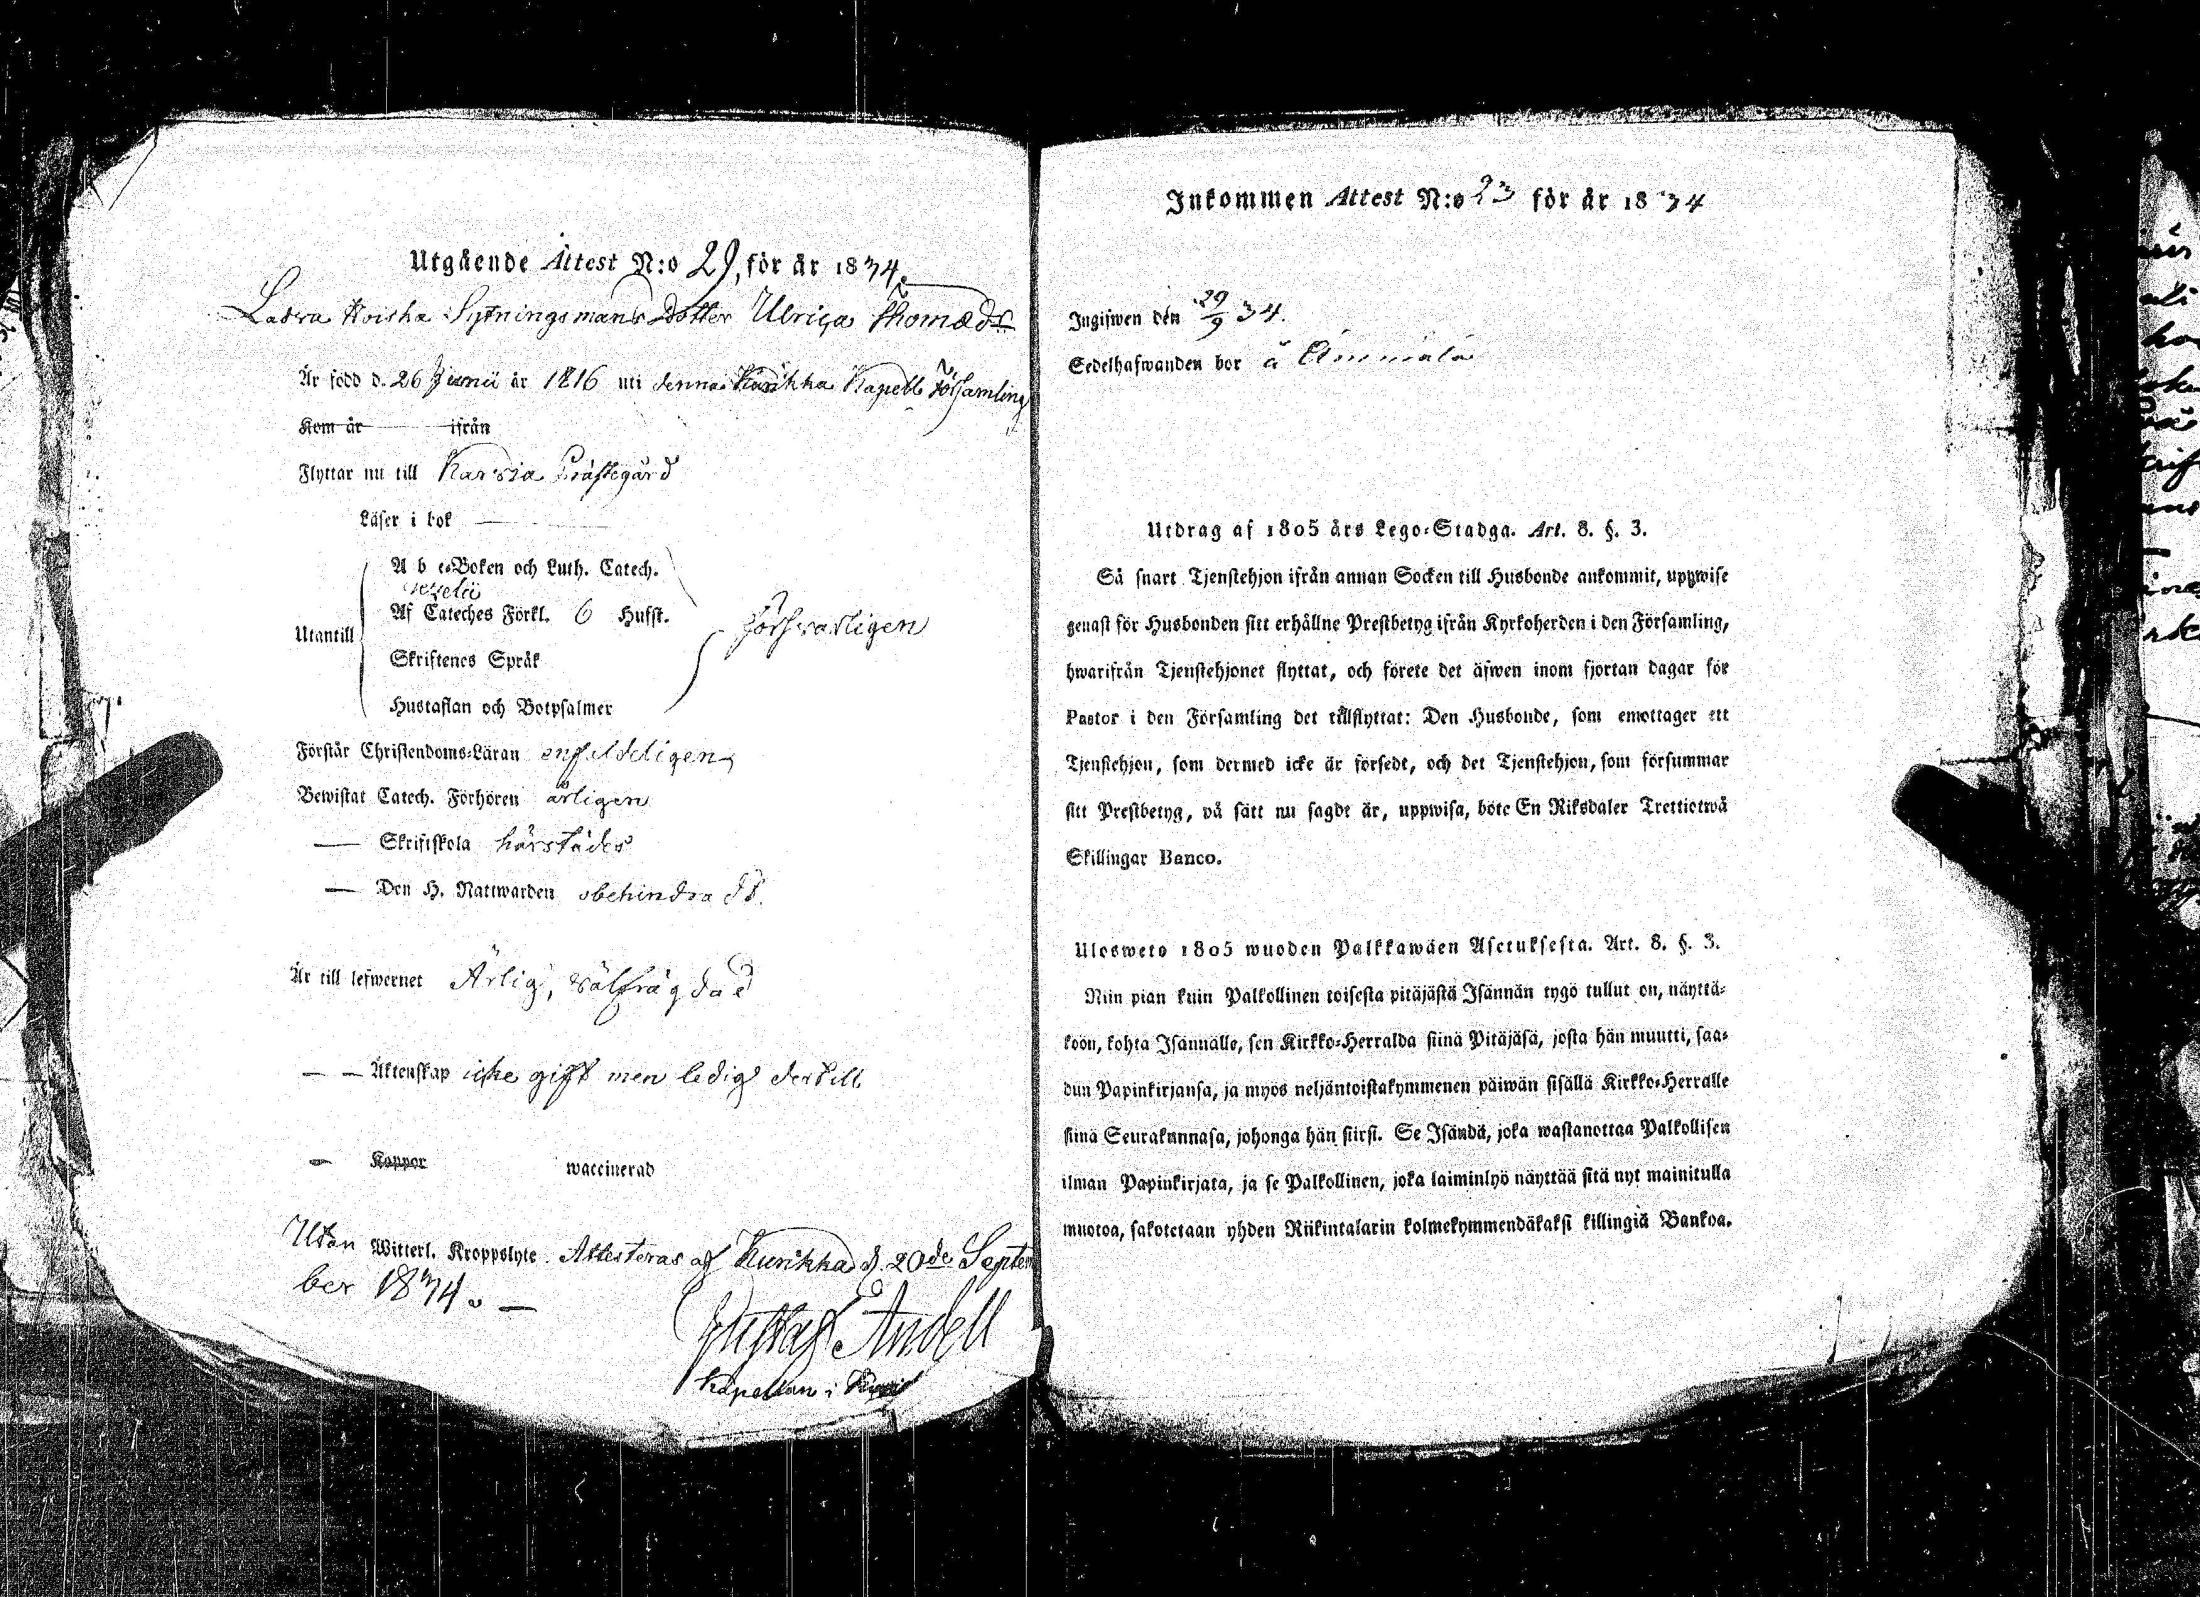 Utgående Attest N:o 29, för år 1834.
Ladra Koiska Sytningsmans Dotter Ulrica Thomædr
Är född d. 26 Junii år 1816 uti denna Kurikka Kapells Församling
Kom år ifrån
Flyttar nu till Karvia Prästegård
Läser i bok
A b c-Boken och Luth. Catech.
Af Cateches Förkl. 6 Hufst.
Utantill
försvarligen
Skriftenes Språk
Hustaflan och Botpsalmer
Förstår Christendoms-Läran enfaldeligen
Bewistat Catech. Förhören årligen
— Skriftskola härstädes
— Den H. Nattwarden obehindrad
Är till lefwernet Ärlig, välfrägdad
— — Äktenskap icke gift men ledig dertill
— Koppor waccinerad
Utan Witterl. Kroppslyte. Attesteras af Kurikka d. 20de Septem
ber 1834. —
Gustaf Andell
Kapellan i
Inkommen Attest N:o 23 för år 1834
Ingifwen den 29/9 34.
Sedelhafwanden bor å Ämmälä
Utdrag af 1805 års Lego-Stadga. Art. 8. §. 3.
Så snart Tjenstehjon ifrån annan Socken till Husbonde ankommit, uppwise
genast för Husbonden sitt erhållne Prestbetyg ifrån Kyrkoherden i den Församling,
hwarifrån Tjenstehjonet flyttat, och förete det äfwen inom fjortan dagar för
Pastor i den Församling det tillflyttat: Den Husbonde, som emottager ett
Tjenstehjon, som dermed icke är försedt, och det Tjenstehjon, som försummar
sitt Prestbetyg, på sätt nu sagdt är, uppwisa, böte En Riksdaler Trettiotwå
Skillingar Banco.
Ulosweto 1805 wuoden Palkkawäen Asetuksesta. Art. 8. §. 3.
Niin pian kuin Palkollinen toisesta pitäjästä Isännän tygö tullut on, näyttä-
köön, kohta Isännälle, sen Kirkko-Herralda siinä Pitäjäsä, josta hän muutti, saa-
dun Papinkirjansa, ja myös neljäntoistakymmenen päiwän sisällä Kirkko-Herralle
siinä Seurakunnasa, johonga hän siirsi. Se Isändä, joka wastanottaa Palkollisen
ilman Papinkirjata, ja se Palkollinen, joka laiminlyö näyttää sitä nyt mainitulla
muotoa, sakotetaan yhden Riikintalarin kolmekymmendäkaksi killingiä Bankoa.